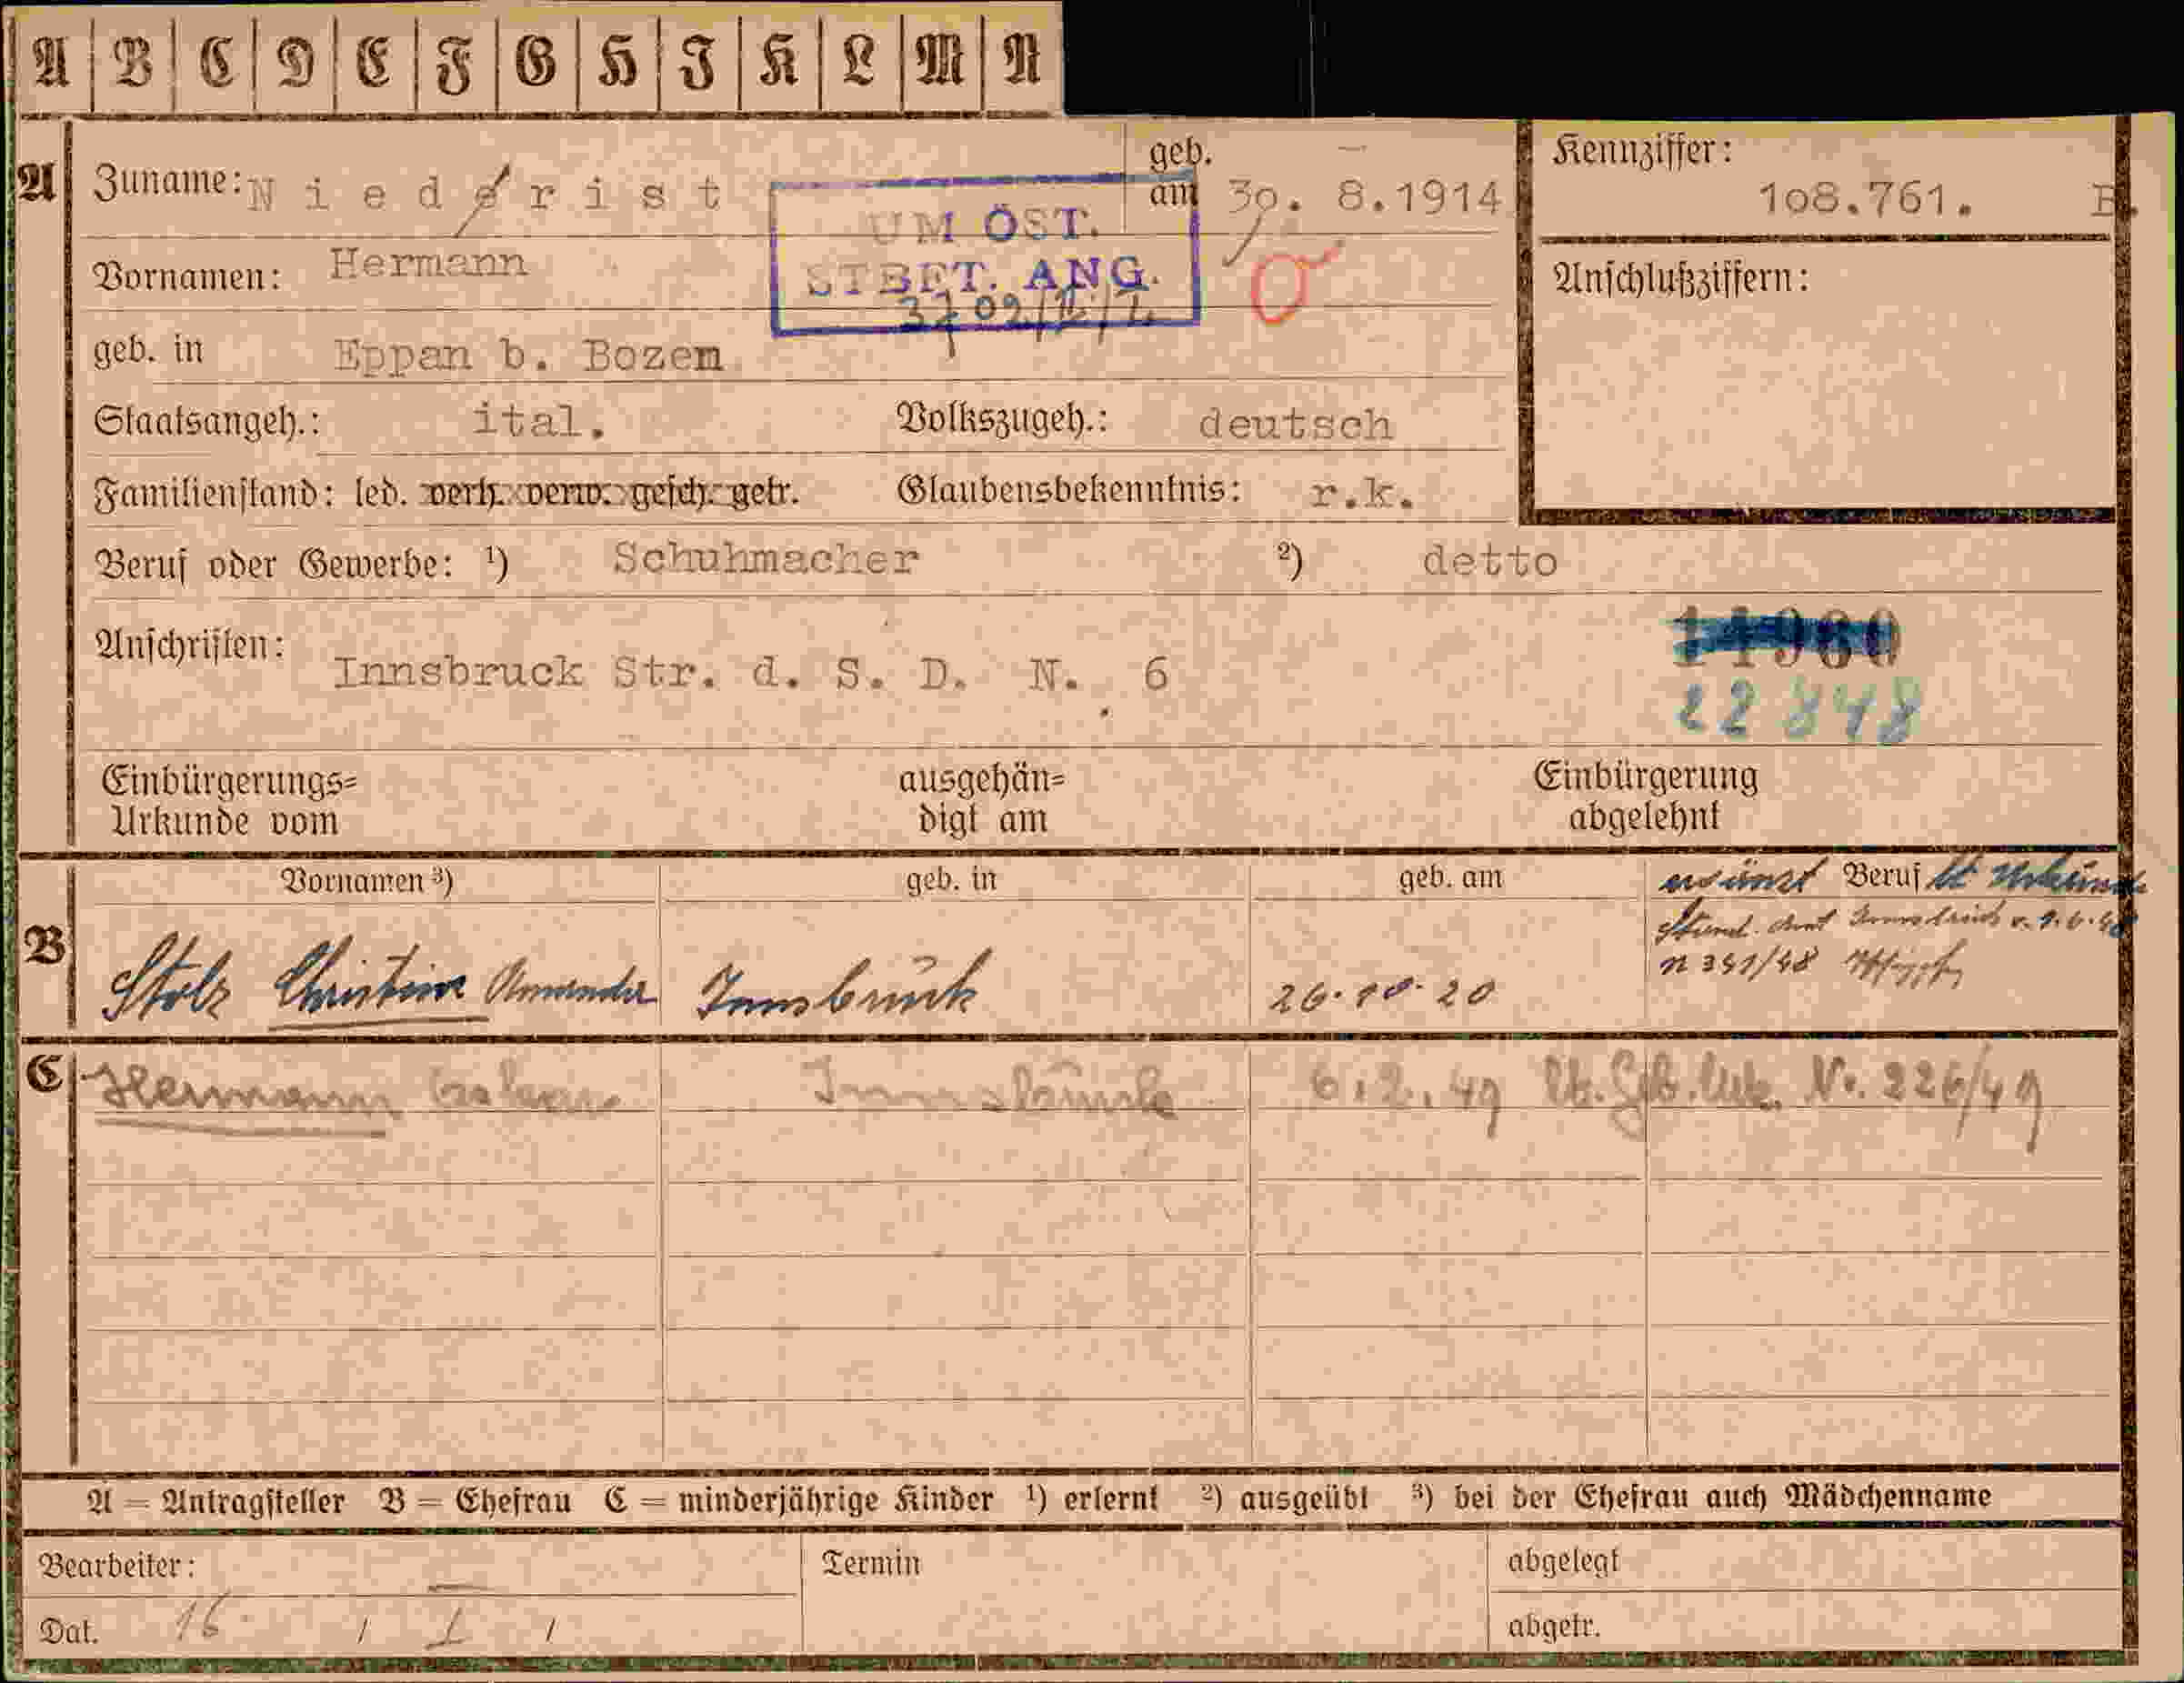 A B C D E F G H I K L M N
A Zuname: Niederist geb. am 30. 8.1914 Kennziffer: 108.761. B.
UM ÖST.
STBET. ANG.
Vornamen: Hermann Anschlußziffern:
geb. in Eppan b. Bozen
Staatsangeh.: ital. Volkszugeh.: deutsch
Familienstand: led. verh. verw. gesch. getr. Glaubensbekenntnis: r.k.
Beruf oder Gewerbe: ¹) Schuhmacher ²) detto
Anschriften: Innsbruck Str. d. S. D. N. 6
14960
22848
Einbürgerungs= ausgehän= Einbürgerung
Urkunde vom digt am abgelehnt
Vornamen ³) geb. in geb. am Beruf lt Urkunde
B Stolz Christine Amanda Innsbruck 26.10.20
Stand. Amt Innsbruck v. 9.6.48
n 391/48
C Hermann Innsbruck 6.2.49 lt. Geb. Urk. Nr. 226/49
A = Antragsteller B = Ehefrau C = minderjährige Kinder ¹) erlernt ²) ausgeübt ³) bei der Ehefrau auch Mädchenname
Bearbeiter: Termin abgelegt
Dat. 16 / I / abgetr.